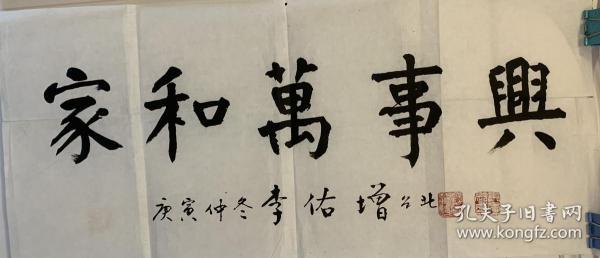 家和萬事興
庚寅仲冬李佑增台北
孔夫子旧书网
www.kongfz.com